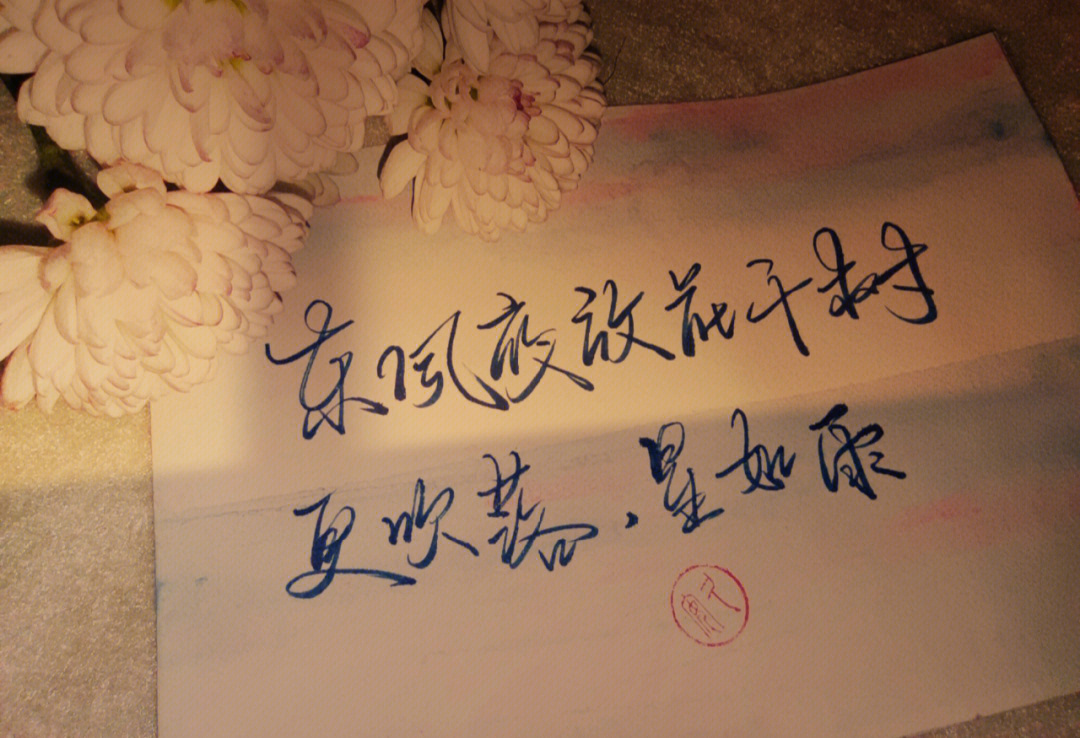 东风夜放花千树
更吹落、星如雨